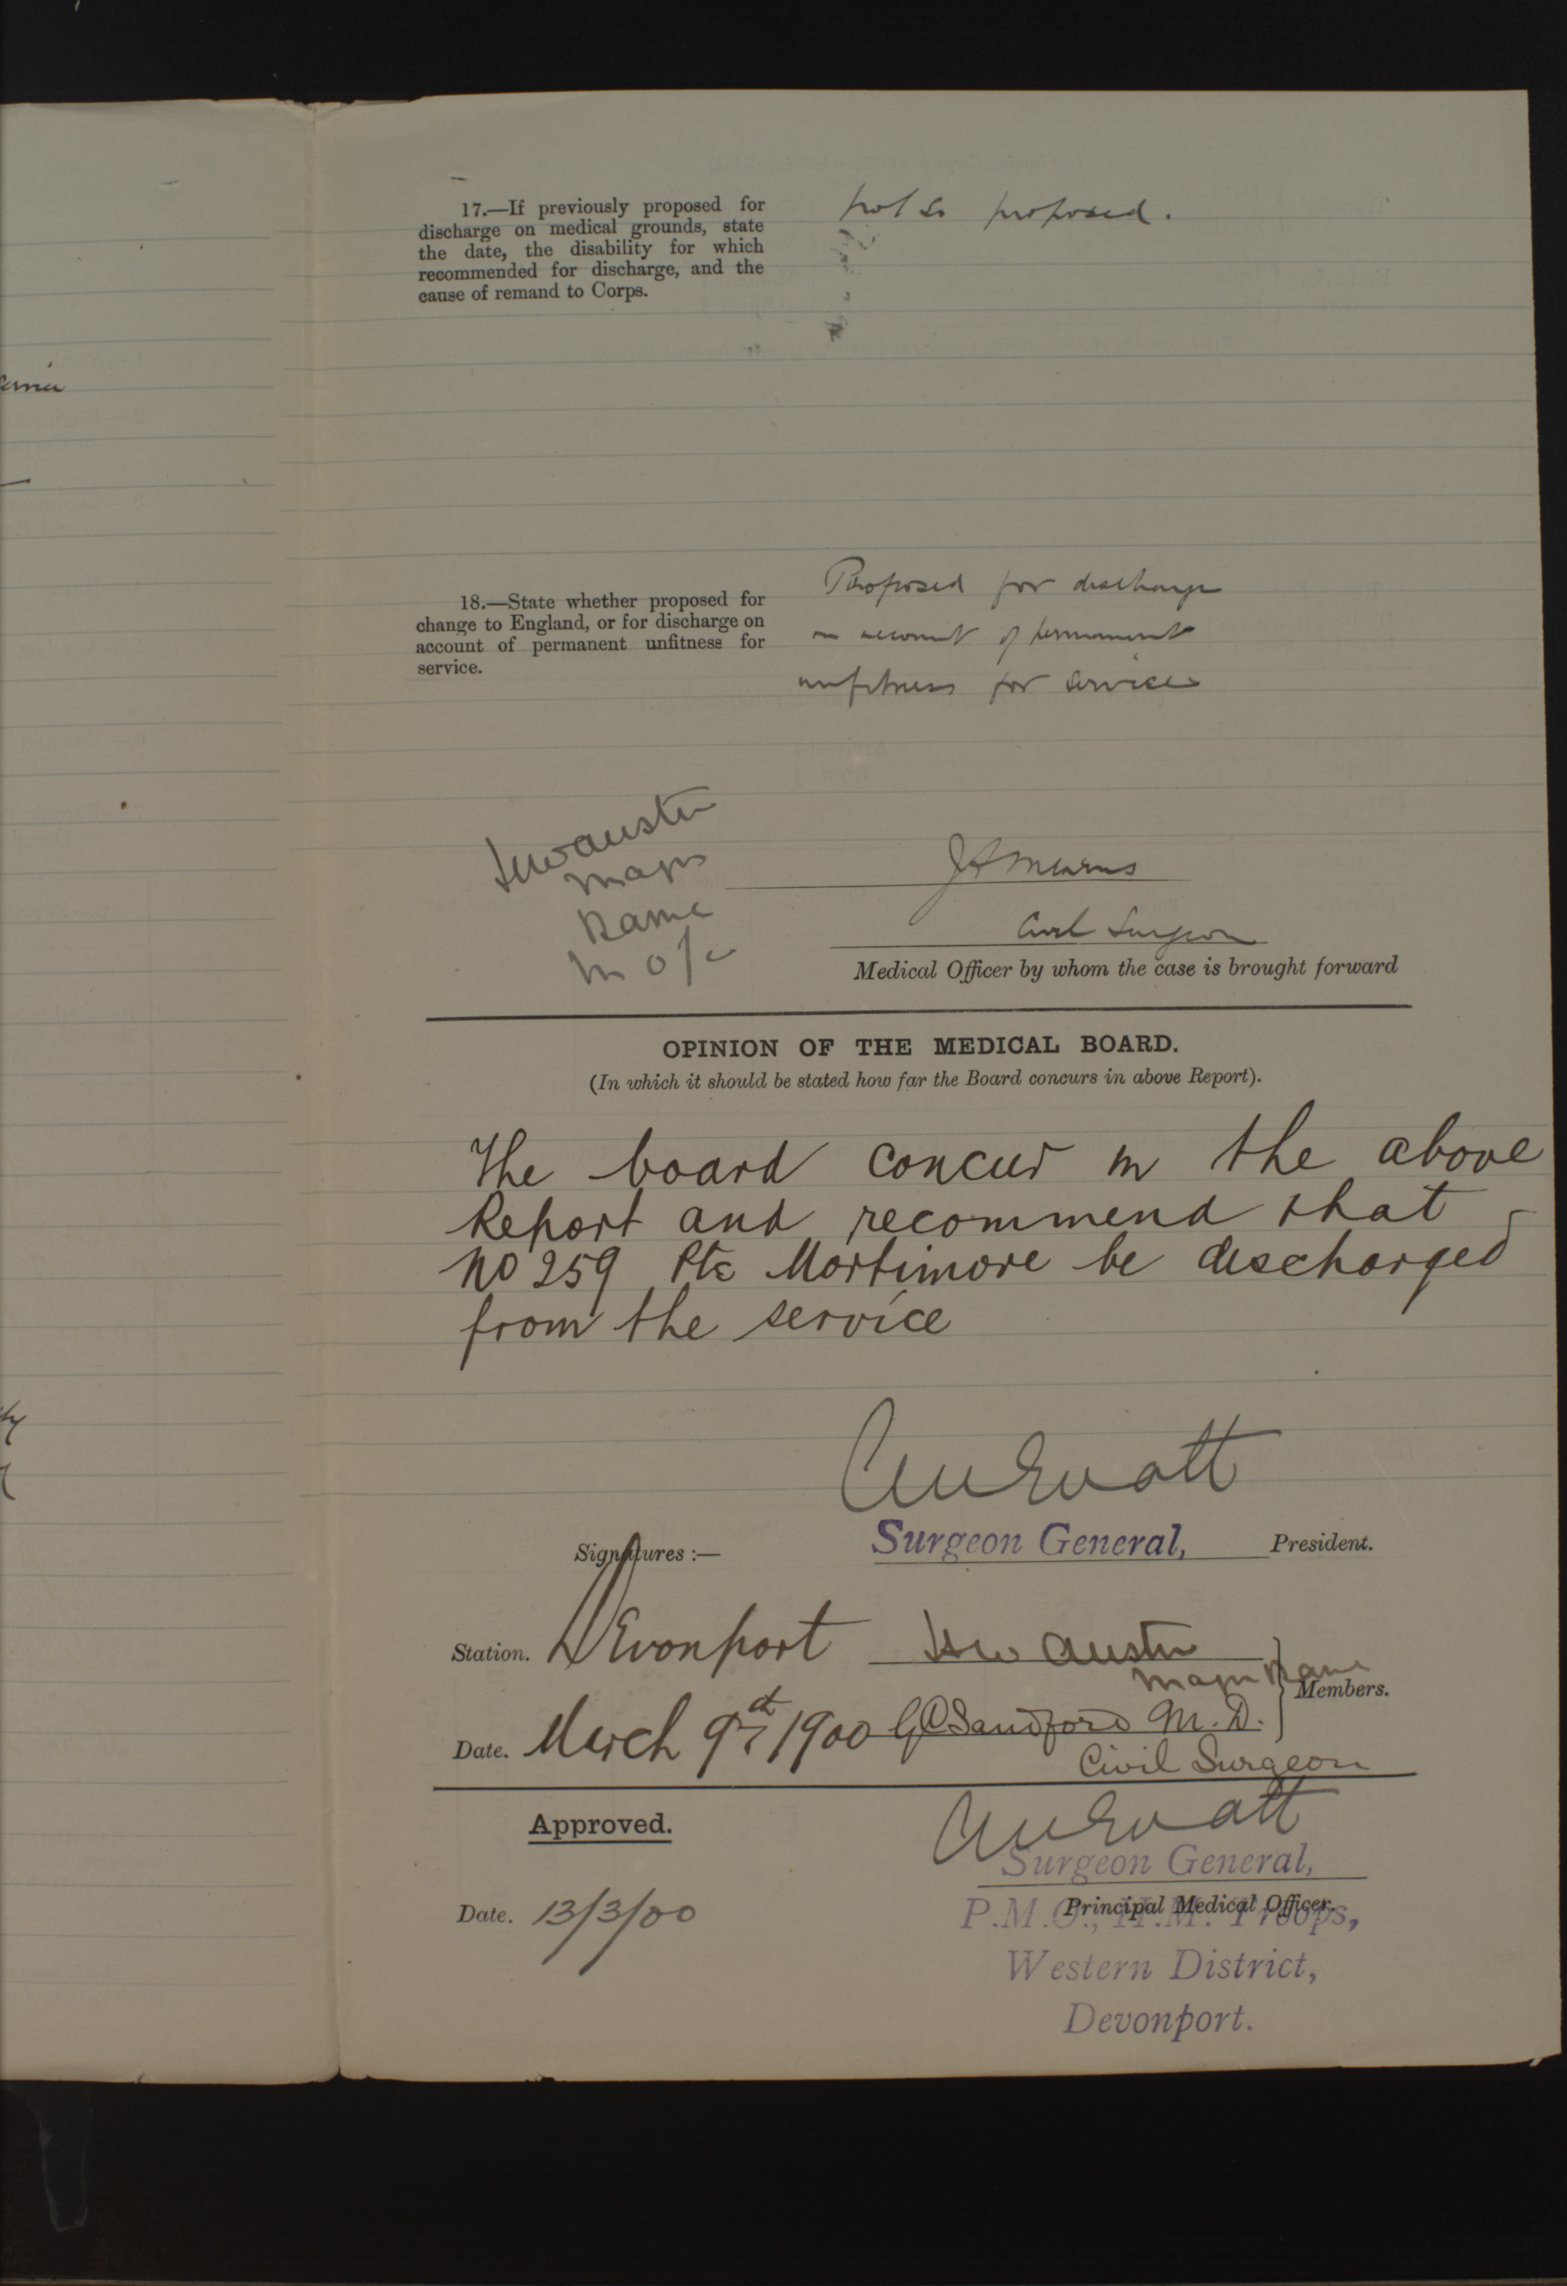 17.—If previously proposed for
discharge on medical grounds, state
the date, the disability for which
recommended for discharge, and the
cause of remand to Corps.
not so proposed.
18.—State whether proposed for
change to England, or for discharge on
account of permanent unfitness for
service.
Proposed for discharge
on account of permanent
unfitness for service
HW Austin
Major
RAMC
M o/c
J A Mearns
Civil Surgeon
Medical Officer by whom the case is brought forward
OPINION OF THE MEDICAL BOARD.
(In which it should be stated how far the Board concurs in above Report).
The board concur in the above
Report and recommend that
No 259 Pte Mortimore be discharged
from the service
Evatt
Signatures :— Surgeon General, President.
Station. Devonport HW Austin
Major RAMC
Members.
Date. March 9th 1900 G C Sandford M.D.
Civil Surgeon
Approved.
Evatt
Surgeon General,
Date. 13/3/00
Principal Medical Officer.
P.M.O., H.M. Troops,
Western District,
Devonport.